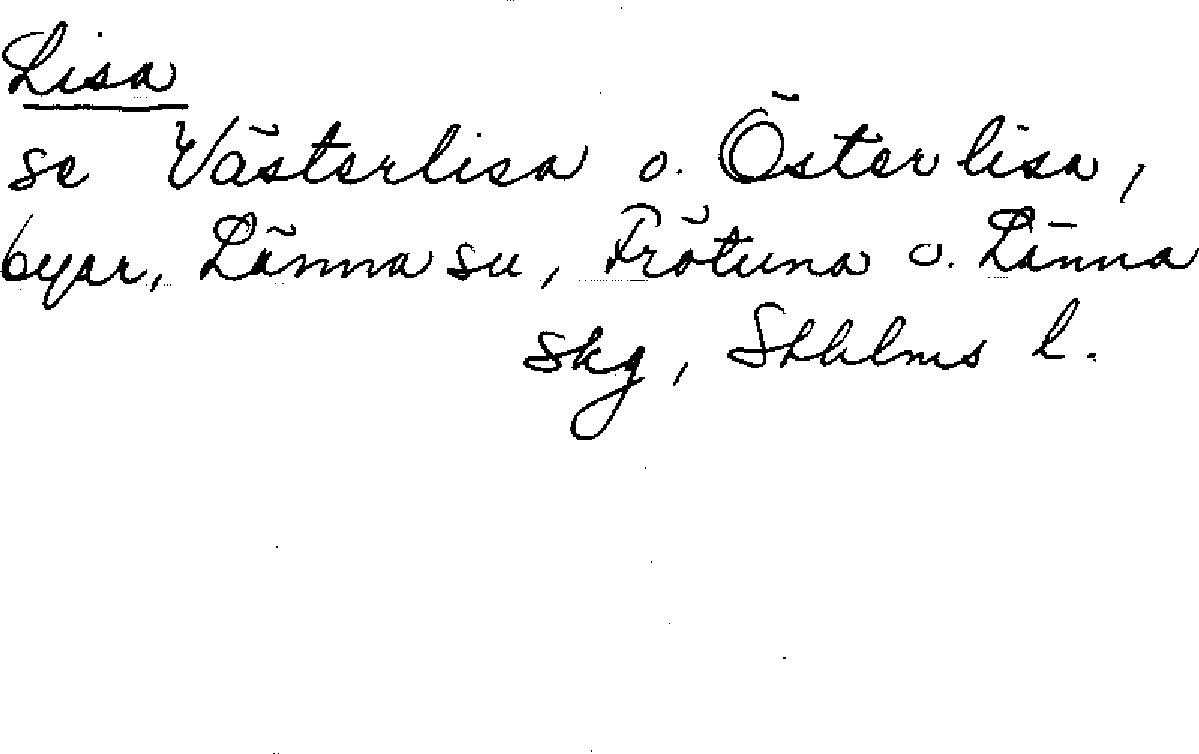 Lisa
se Västerlisa o. Österlisa,
byar, Länna sn, Frötuna o. Länna
skg, Sthlms l.